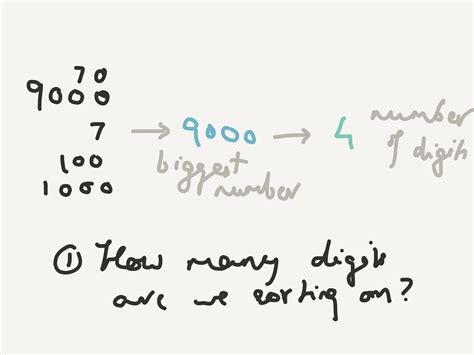 70
9000
7 → 9000 → 4 number of digits
100 biggest
1000 number
① How many digits
are we sorting on?